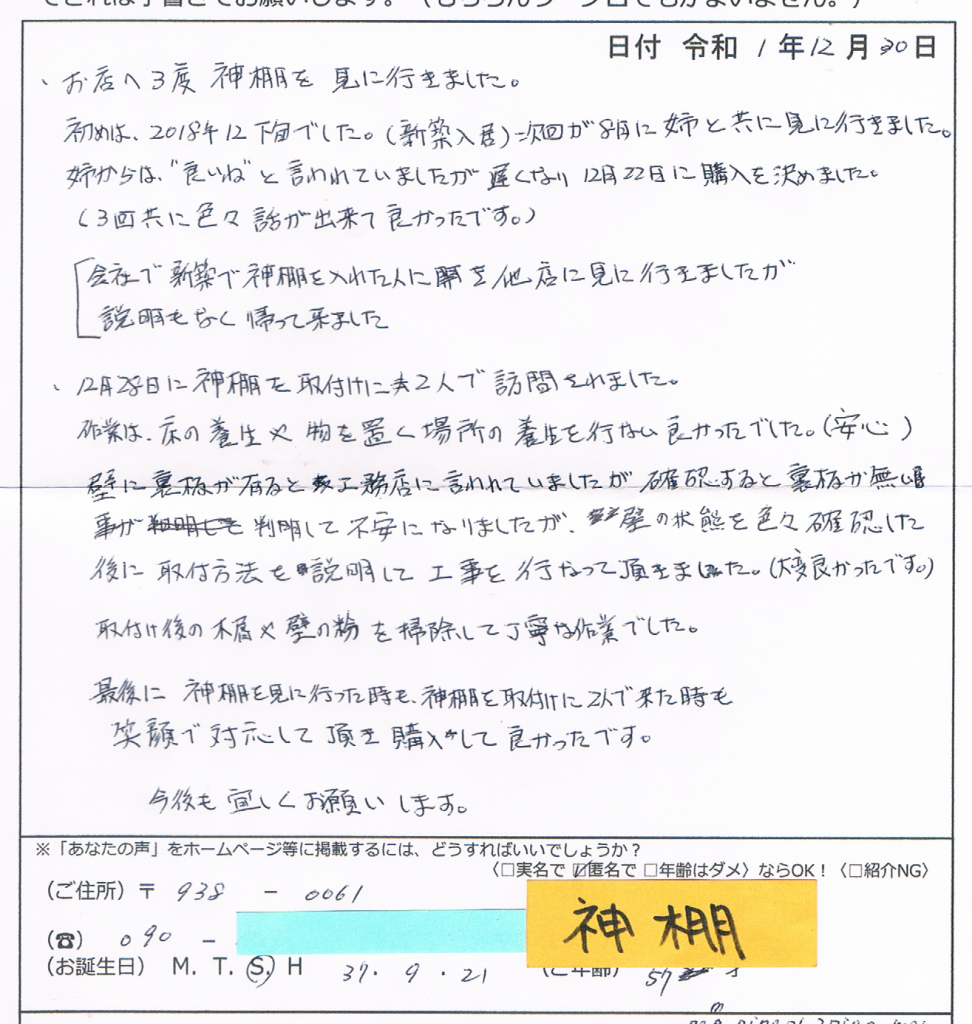 できれば手書きでお願いします。（もちろんワープロでもかまいません。）
日付 令和 1年12月30日
、お店へ3度 神棚を 見に行きました。
初めは、2018年12下旬でした。(新築入居)次回が8月に姉と共に見に行きました。
姉からは、"良いね"と言われていましたが 遅くなり 12月22日に購入を決めました。
（3回共に色々話が出来て良かったです。）
会社で新築で神棚を入れた人に聞き他店に見に行きましたが
説明もなく帰って来ました
、12月28日に神棚を取付けに2人で訪問されました。
作業は、床の養生や物を置く場所の養生を行ない良かったでした。(安心)
壁に裏板が有ると工務店に言われていましたが確認すると裏板が無い
事が 判明して不安になりましたが、壁の状態を色々確認した
後に取付方法を説明して工事を行なって頂きました。(大変良かったです。)
取付け後の木屑や壁の粉を掃除して丁寧な作業でした。
最後に 神棚を見に行った時も、神棚を取付けに2人で来た時も
笑顔で対応して頂き購入して良かったです。
今後も宜しくお願いします。
※「あなたの声」をホームページ等に掲載するには、どうすればいいでしょうか？
〈□実名で ☑匿名で □年齢はダメ〉ならOK！〈□紹介NG〉
（ご住所）〒 938 - 0061
（☎） 090 -
神棚
（お誕生日） M. T. S. H 37. 9. 21 （ご年齢） 57 才